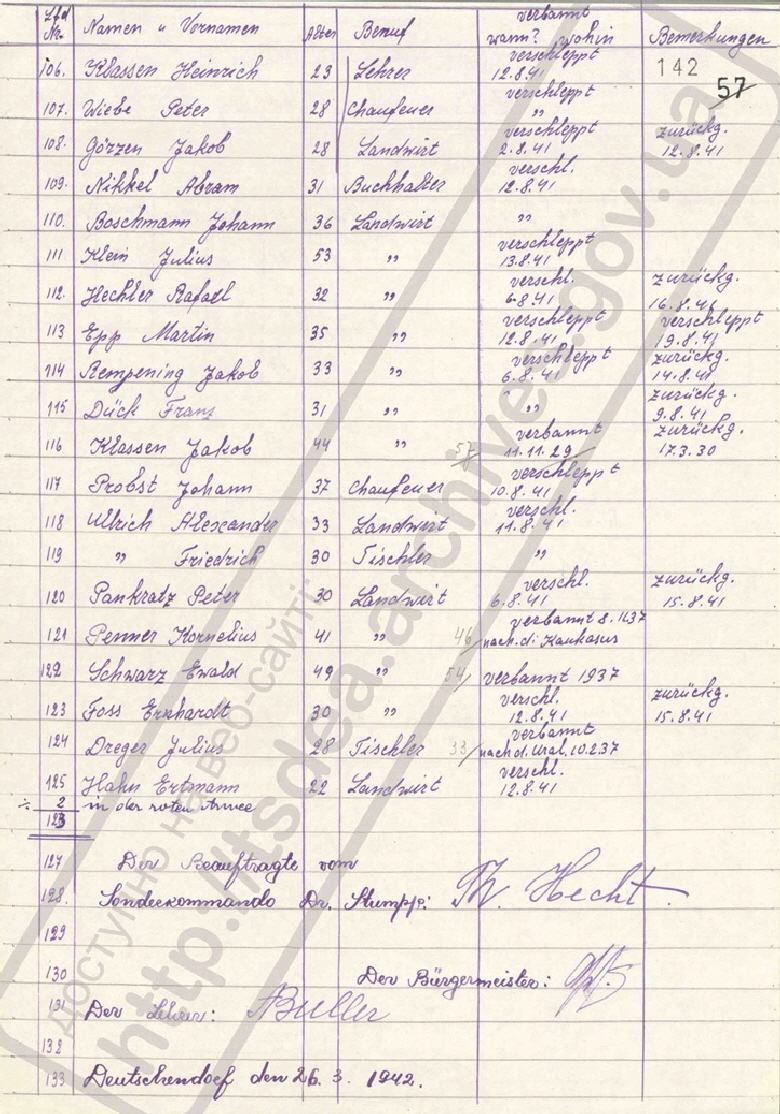 Lfd Nr. Namen u Vornamen Alter Beruf verbannt wann? wohin Bemerkungen
142
57
106. Klassen Heinrich 23 Lehrer verschleppt 12.8.41
107. Wiebe Peter 28 Chaufeuer verschleppt „
108. Görzen Jakob 28 Landwirt verschleppt 2.8.41 zurückg. 12.8.41
109. Nikkel Abram 31 Buchhalter verschl. 12.8.41
110. Boschmann Johann 36 Landwirt „
111 Klein Julius 53 „ verschleppt 13.8.41
112. Hechler Rafael 32 „ verschl. 6.8.41 zurückg. 16.8.41
113 Epp Martin 35 „ verschleppt 12.8.41 verschleppt 19.8.41
114 Rempening Jakob 33 „ verschleppt 6.8.41 zurückg. 14.8.41
115 Dück Frans 31 „ „ zurückg. 9.8.41
116 Klassen Jakob 44 „ 57 verbannt 11.11.29 zurückg. 17.3.30
117 Probst Johann 37 Chaufeuer verschleppt 10.8.41
118 Ullrich Alexander 33 Landwirt verschl. 11.8.41
119 „ Friedrich 30 Tischler „
120 Pankratz Peter 30 Landwirt verschl. 6.8.41 zurückg. 15.8.41
121 Penner Kornelius 41 „ 46 verbannt 8.11.37 nach. d. Kaukasus
122 Schwarz Ewald 49 „ 54 verbannt 1937
123 Foss Erhardt 30 „ verschl. 12.8.41 zurückg. 15.8.41
124 Dreger Julius 28 Tischler 33 verbannt nach d. Ural. 10.2.37
125 Hahn Ertmann 22 Landwirt verschl. 12.8.41
÷ 2 in der roten Armee
123
127 Der Beauftragte vom
128 Sonderkommando Dr. Stumpp: Th. Hecht
129
130 Der Bürgermeister:
131 Der Lehrer: Buller
132
133 Deutschendorf den 26. 3. 1942.
доступно на веб-сайті:
http://tsdea.archives.gov.ua